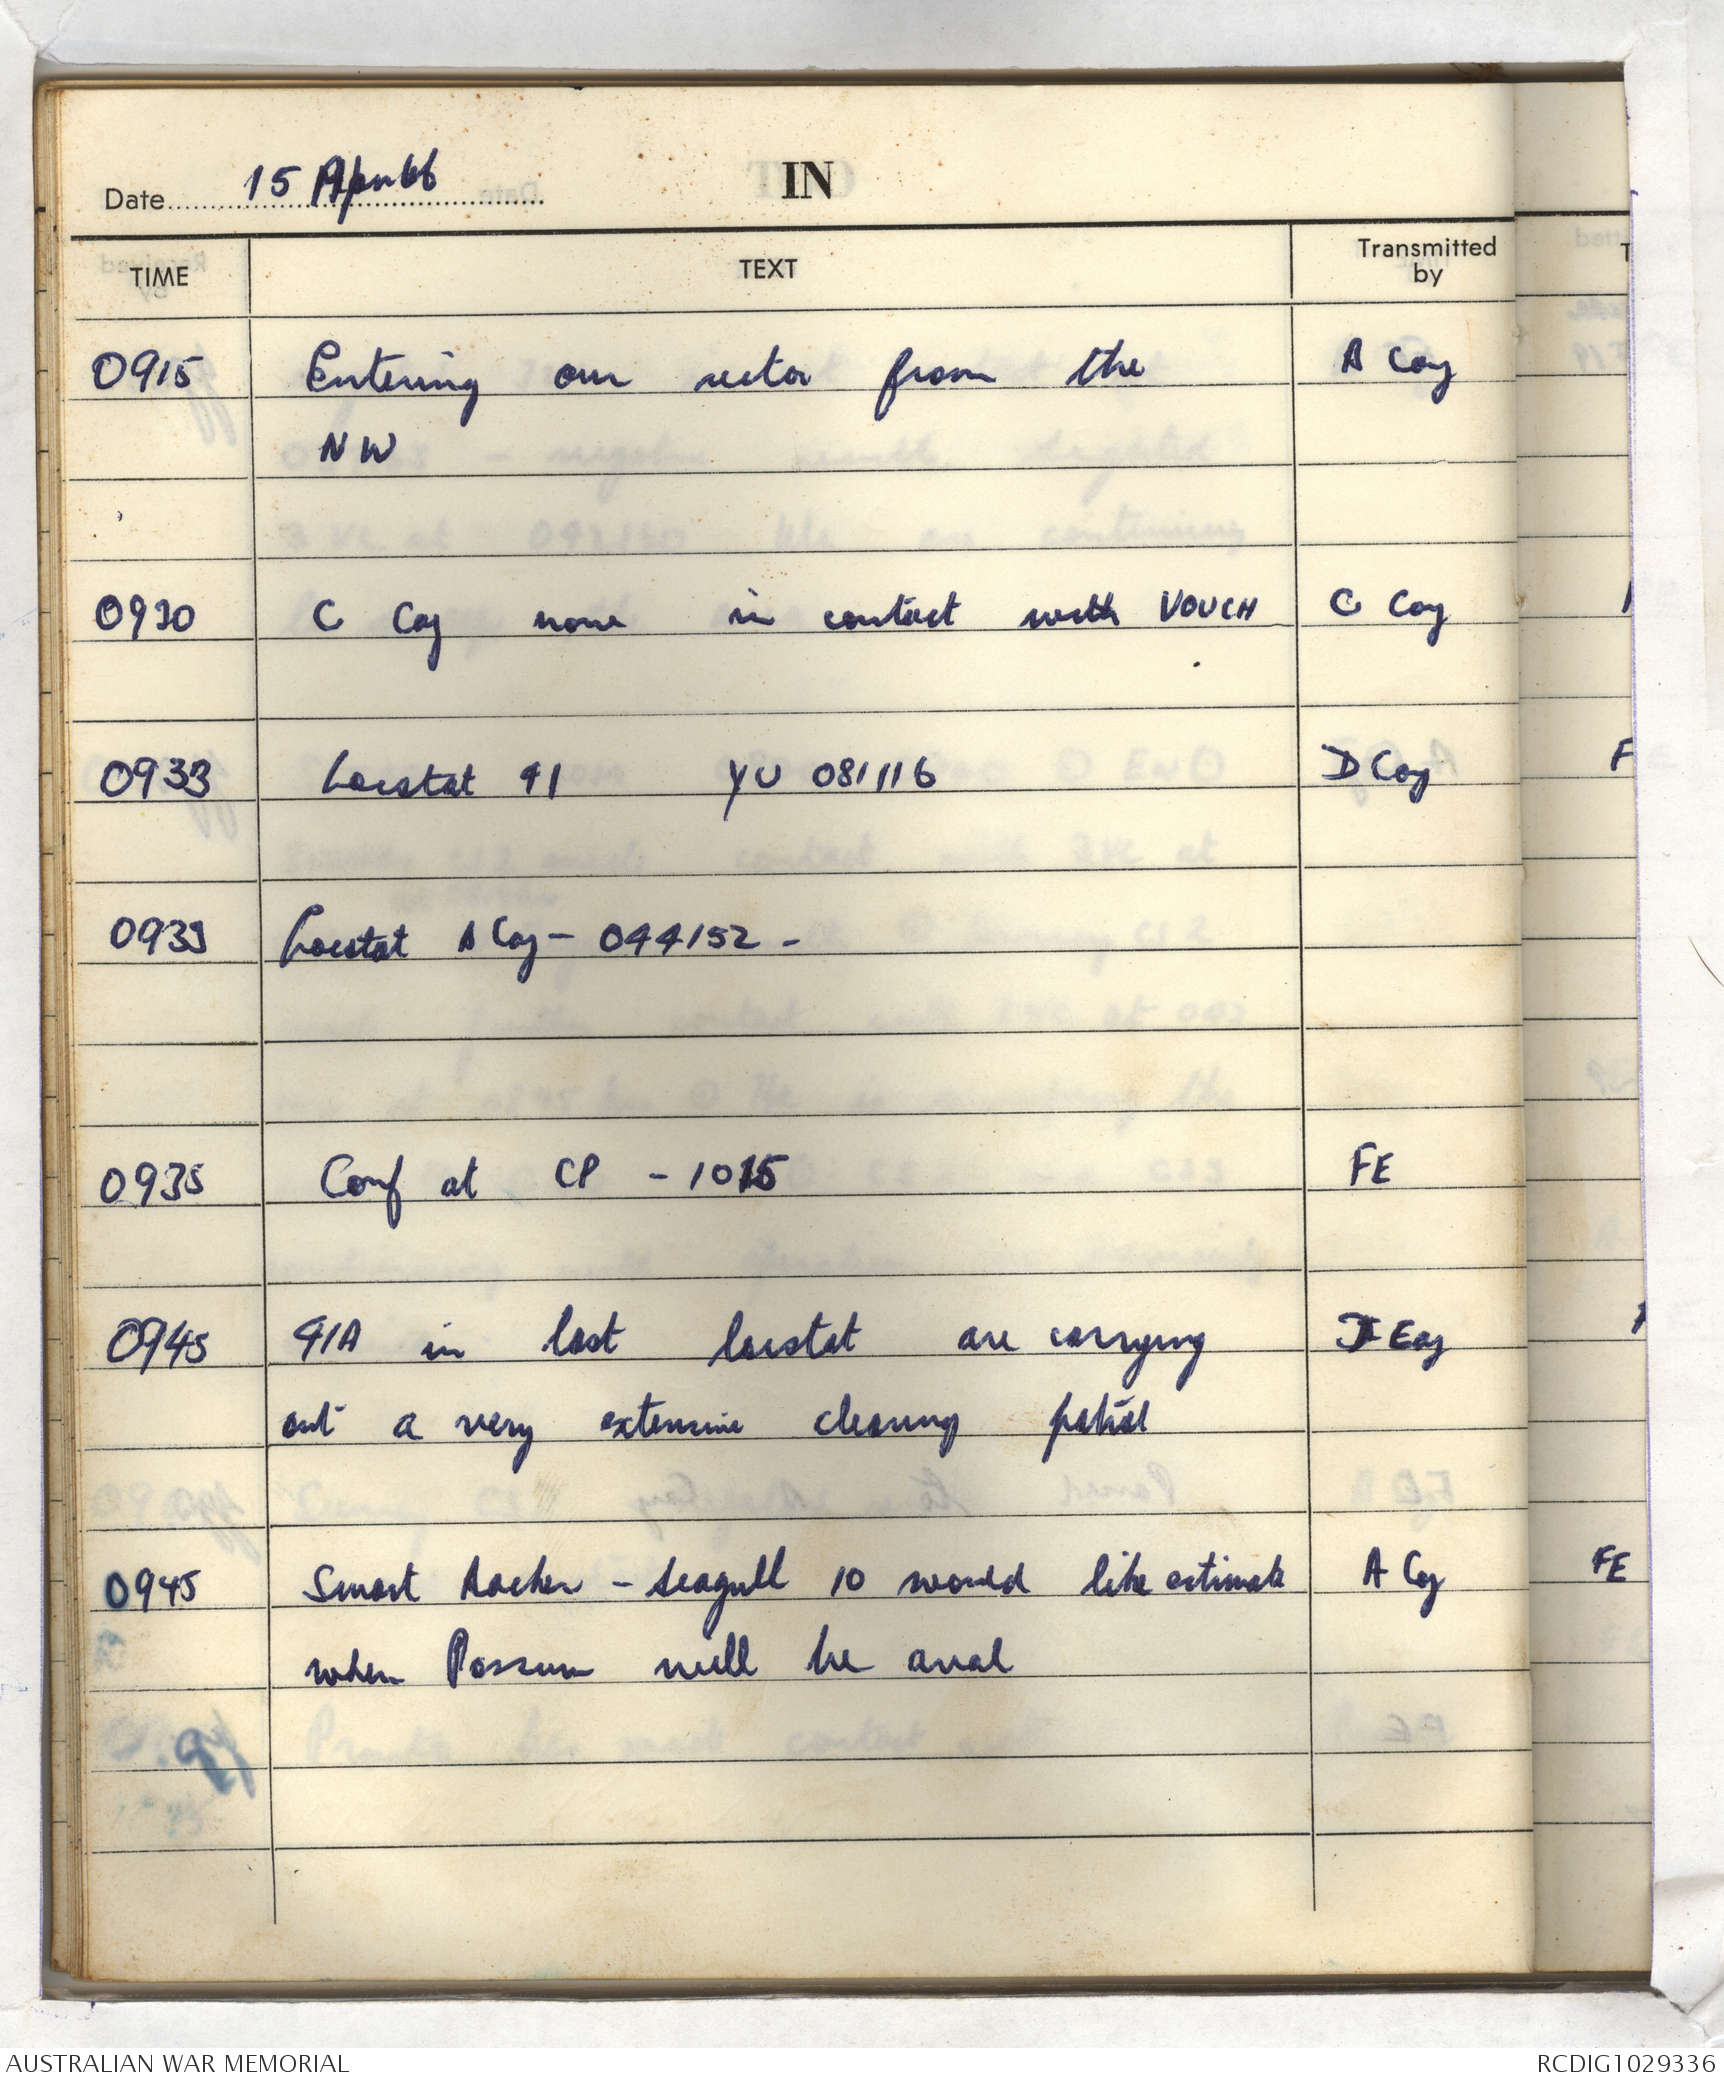 Date 15 Apr 66
IN
TIME TEXT Transmitted by
0915 Entering our sector from the A Coy
NW
0930 C Coy now in contact with VOUCH C Coy
0933 Locstat 41 YU 081116 D Coy
0933 Locstat A Coy - 044152 -
0935 Conf at CP - 1015 FE
0945 41A in last locstat are carrying Coy
out a very extensive clearing patrol
0945 Smart - Seagull 10 would like estimate A Coy
when Possum will be aval
FE
AUSTRALIAN WAR MEMORIAL
RCDIG1029336